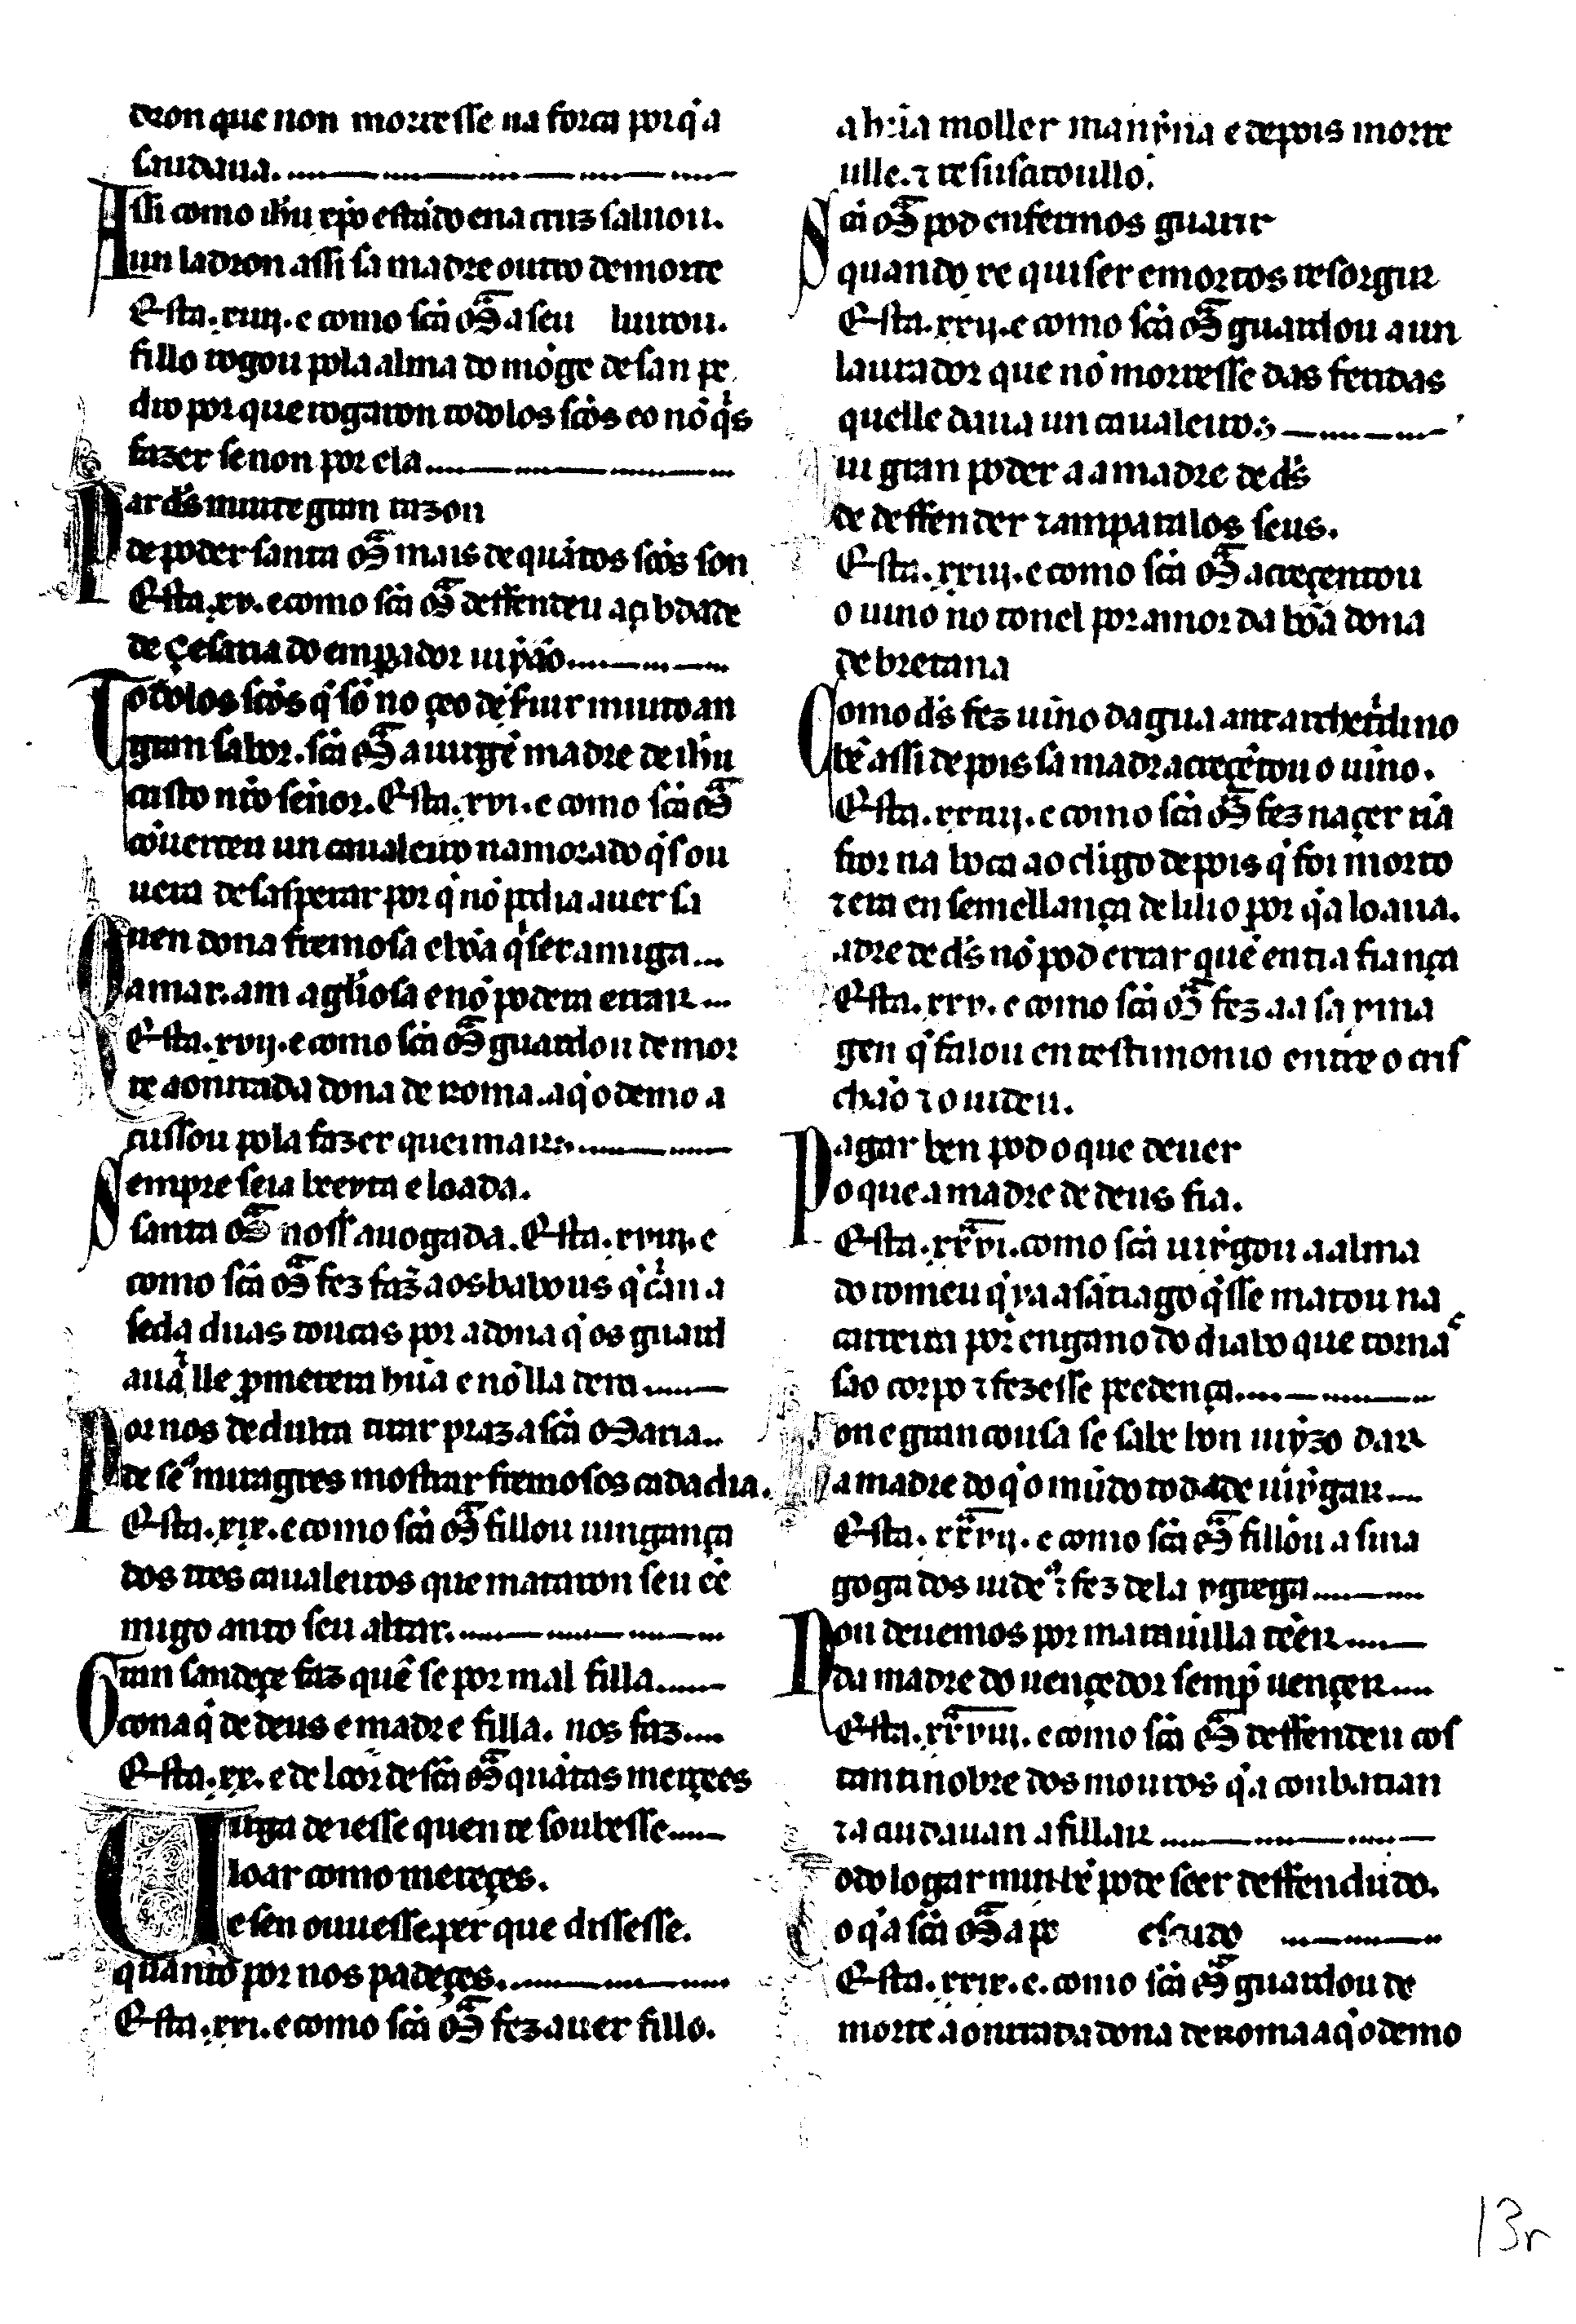 dron que non morresse na forca por q̇ a
saudaua.
Assi como ih̃u xp̃o estãdo ena cruz saluou.
un ladron assi sa madre outro de morte
Esta .xiiij. e como sc̃a M̃ a seu liurou.
fillo rogou pola alma do mõge de san pe
dro por que rogaron todolos sc̃os e o nõ q̇s
fazer senon por ela
Par d̃s muit e gran razon
de poder santa M̃ mais de quãtos sc̃os son
Esta .xv. e como sc̃a M̃ deffendeu a çibdade
de Çesaria do emp̃ador iuyão
Todolos sc̃os q̇ sõ no çeo de s̃uir muito an
gran sabor. sc̃a M̃ a uirgẽ madre de ih̃u
cristo nr̃o señor. Esta .xvi. e como sc̃a M̃
cõuerteu un caualeiro namorado q̇ s ou
uera desasperar por q̇ nõ podia auer sa
Quen dona fremosa e bõa q̇ser amiga
amar. am a gl̃iosa e nõ podera errar
Esta .xvij. e como sc̃a M̃ guardou de mor
te a onrrada dona de roma. a q̇ o demo a
cussou pola fazer queimar.
Sempre seia beeyta e loada.
santa M̃ nossa auogada. Esta .xviij. e
como sc̃a M̃ fez faz̃ aos babous q̇ crian a
seda duas toucas por a dona q̇ os guard
auã lle p̃metera hũa e nõ lla dera
Por nos de dulta tirar praz a sc̃a Maria
de seus miragres mostrar fremosos cada dia.
Esta .xix. e como sc̃a M̃ fillou uingança
dos tres caualeiros que mataron seu ẽe
migo anto seu altar.
Gran sandeçe faz quẽ se por mal filla
cona q̇ de deus e madre filla. nos faz
Esta .xx. e de loor de sc̃a M̃ quãtas merçees
Uirga de iesse quen te soubesse
loar como mereçes.
e sen ouuesse per que dissesse.
quanto por nos padeçes.
Esta .xxi. e como sc̃a M̃ fez auer fillo.
a hũa moller manỹna e depois morre
ulle. ⁊ resusatoullo.
Sc̃a M̃ pod enfermos guarir
quando xe quiser e mortos resorgir
Esta .xxij. e como sc̃a M̃ guardou a un
laurador que nõ morresse das feridas
quelle daua un caualeiro.
ui gran poder a a madre de d̃s
de deffender ⁊ amparalos seus.
Esta .xxiij. e como sc̃a M̃ acreçentou
o uino no tonel por amor da bõa dona
de bretana
Como d̃s fez uino dagua ant architicr̃ino
bẽ assi depois sa madr acreçẽtou o uino.
Esta .xxiiij. e como sc̃a M̃ fez naçer ũa
fror na boca ao cl̃igo depois q̇ foi morto
⁊ era en semellança de lilio por q̇ a loaua.
adre de d̃s nõ pod errar quẽ en ti a fiança
Esta .xxv. e como sc̃a M̃ fez aa sa yma
gen q̇ falou en testimonio entre o cris
chão ⁊ o iudeu.
Pagar ben pod o que deuer
o que a madre de deus fia.
Esta .xxvi. como sc̃a uirgou a alma
do romeu q̇ ya a sãtiago q̇sse matou na
carreira por engano do diabo que tornas
sao corpo ⁊ fezesse pẽedença
on e gran cousa se sabe bon iuyzo dar
a madre do q̇ o mũdo tod a de iuỹgar
Esta .xxvij. e como sc̃a M̃ fillou a sina
goga dos iudeus ⁊ fez dela ygreia
Non deuemos por marauilla tẽer
da madre do uençedor semp̃ uençer
Esta .xxviij. e como sc̃a M̃ deffendeu cos
tantinobre dos mouros q̇ a conbatian
⁊ a cuidauan a fillar
odo logar muit bẽ pode seer deffendudo.
o q̇ a sc̃a M̃ a por escudo
Esta .xxix. e. como sc̃a M̃ guardou de
morte a onrrada dona de roma a q̇ o demo
13r